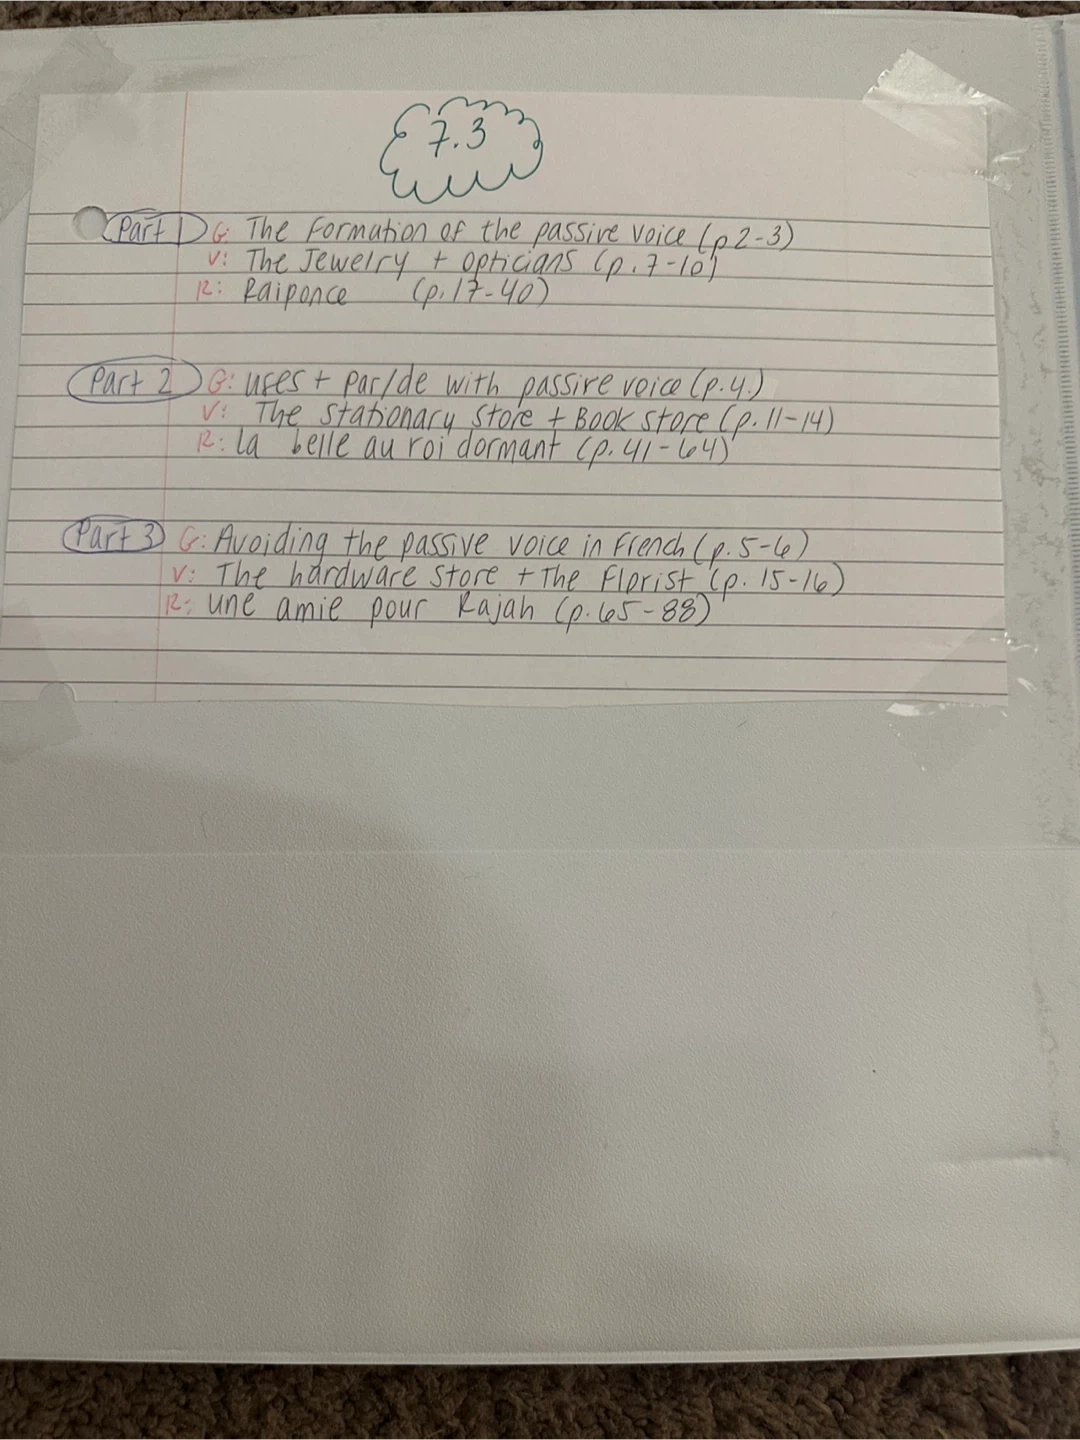 7.3
Part 1 G: The Formation of the passive voice (p 2-3)
V: The Jewelry + opticians (p. 7-10)
R: Raiponce (p. 17-40)
Part 2 G: uses + par/de with passive voice (p. 4.)
V: The stationary store + Book store (p. 11-14)
R: la belle au roi dormant (p. 41-64)
Part 3 G: Avoiding the passive voice in French (p. 5-6)
V: The hardware store + the Florist (p. 15-16)
R: une amie pour Rajah (p. 65-88)